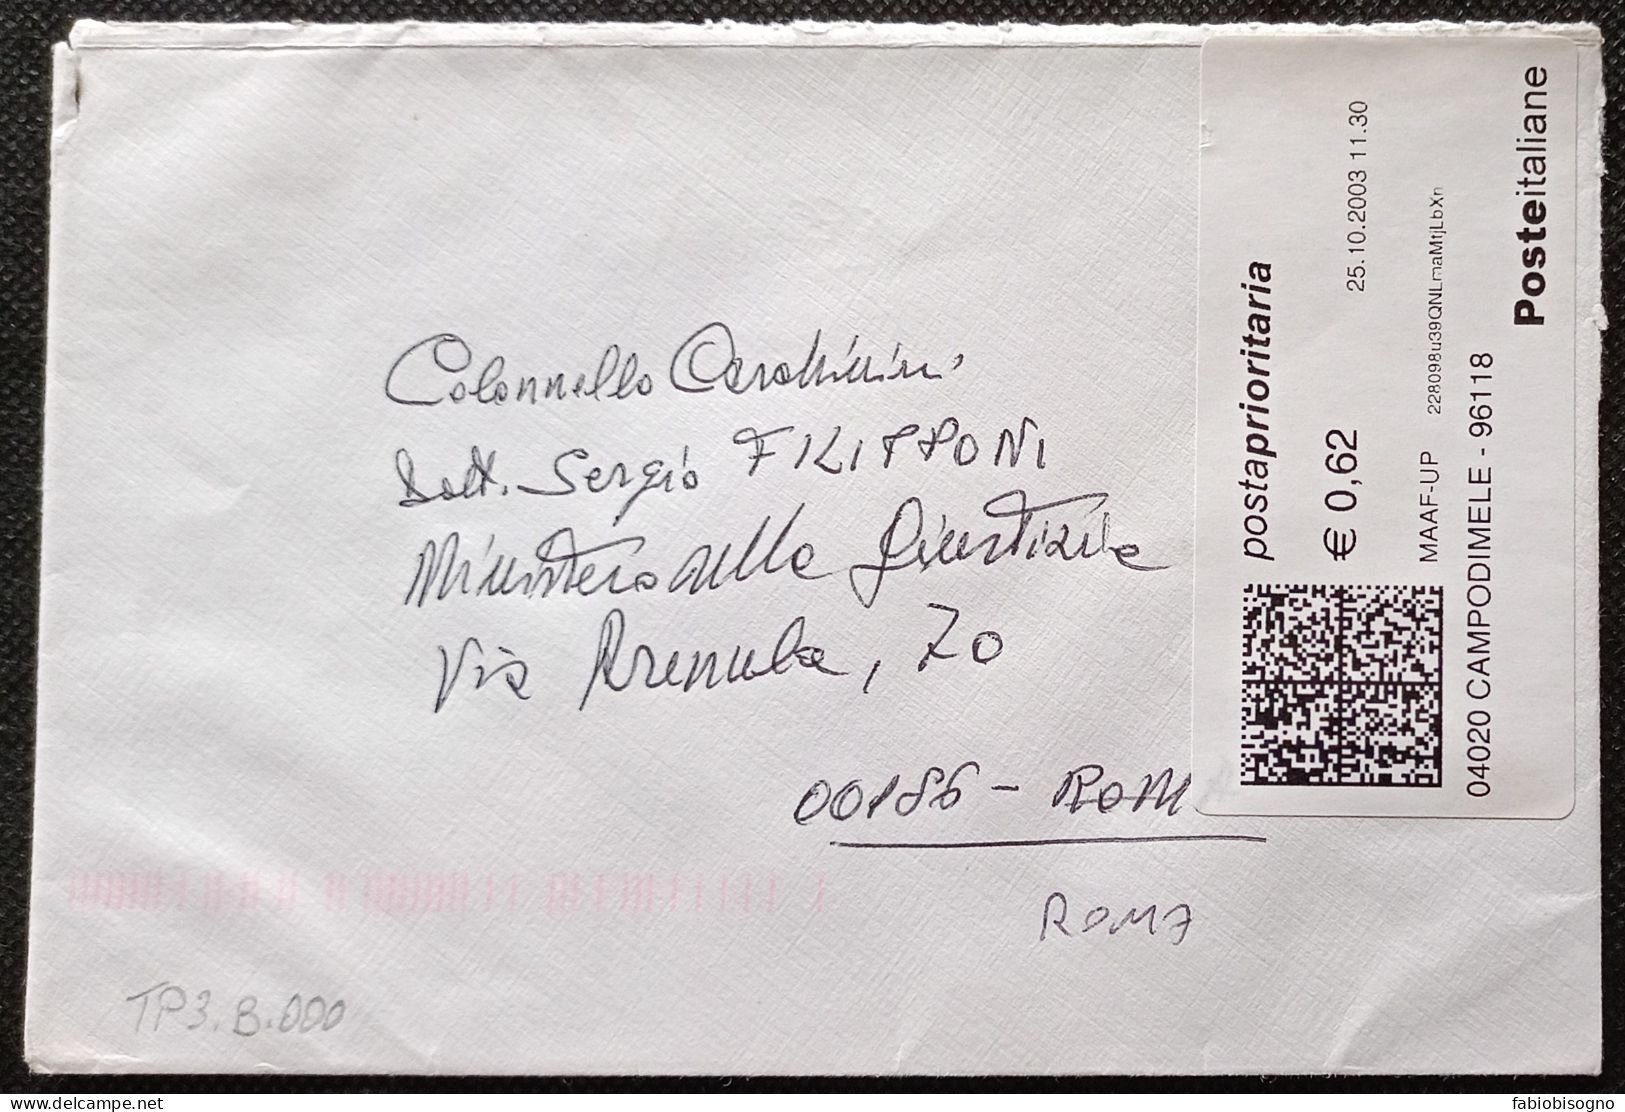 Colonnello Carabinieri
Dott. Sergio FILIPPONI
Ministero della Giustizia
Via Arenula, 70
00186 - ROMA
ROMA
TP3.B.000
postaprioritaria
€ 0,62
25.10.2003 11.30
MAAF-UP 228098u39QNLmaMtjLbXn
04020 CAMPODIMELE - 96118
Posteitaliane
delcampe.net
fabiobisogno